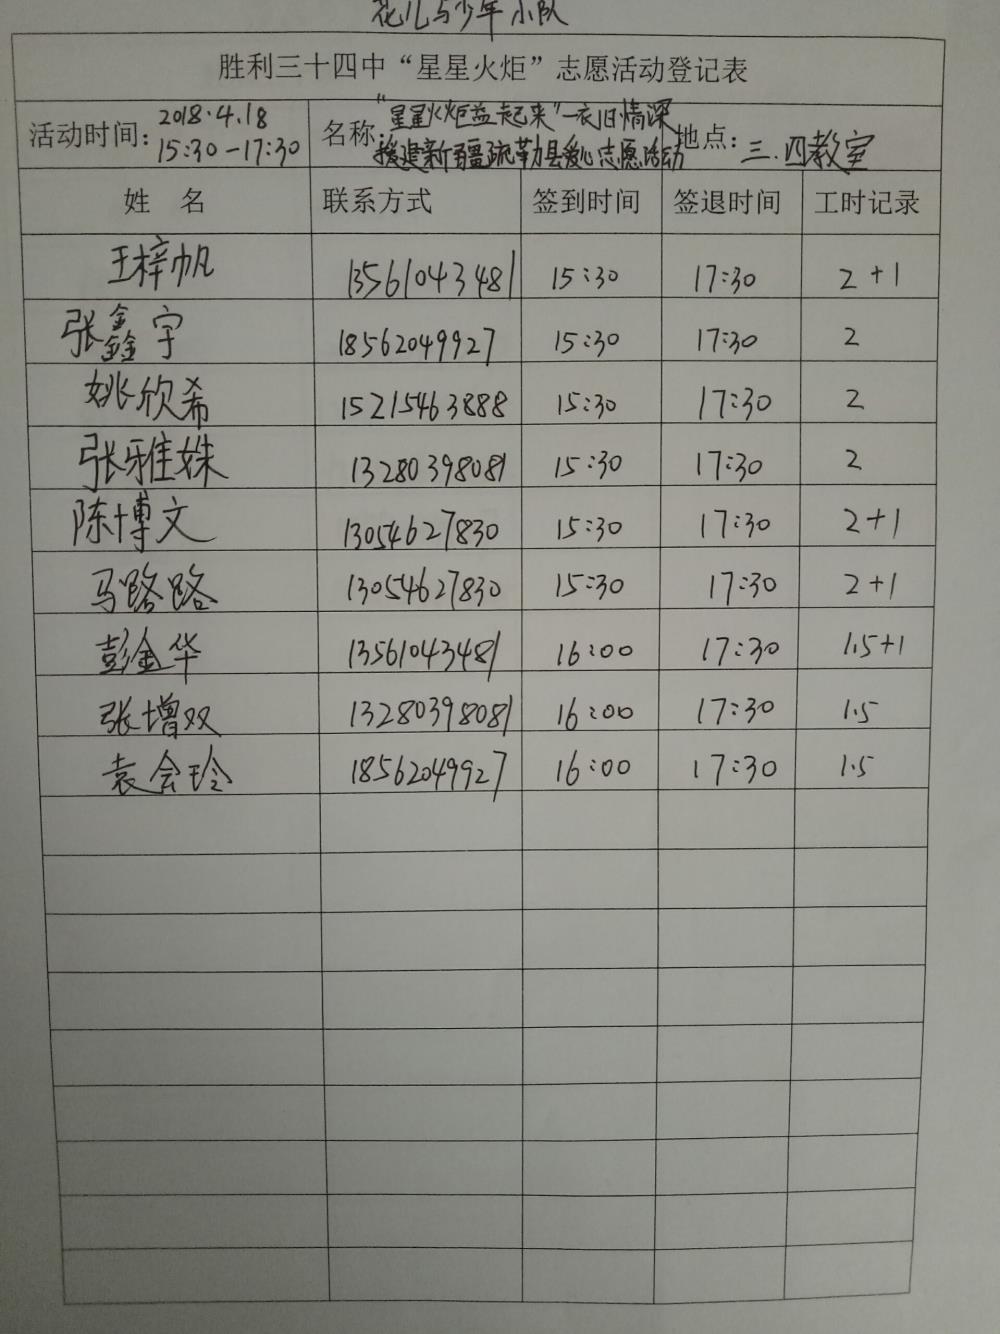 花儿与少年小队
胜利三十四中“星星火炬”志愿活动登记表
活动时间：2018.4.18 15:30-17:30 名称：“星星火炬益起来”一衣旧情深 援建新疆疏勒县爱心志愿活动 地点：三.四教室
姓 名 联系方式 签到时间 签退时间 工时记录
王梓帆 13561043481 15:30 17:30 2+1
张鑫宇 18562049927 15:30 17:30 2
姚欣希 15215463888 15:30 17:30 2
张雅姝 13280398081 15:30 17:30 2
陈博文 13054627830 15:30 17:30 2+1
马路路 13054627830 15:30 17:30 2+1
彭金华 13561043481 16:00 17:30 1.5+1
张增双 13280398081 16:00 17:30 1.5
袁会玲 18562049927 16:00 17:30 1.5